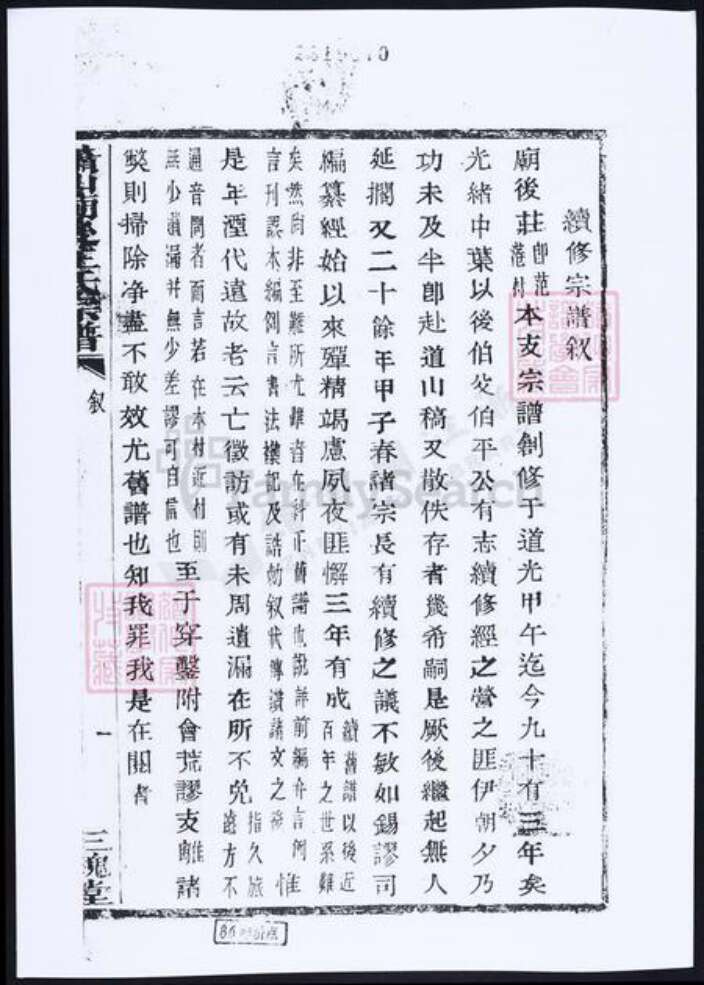 續修宗譜叙
廟後莊即范港村本支宗譜創修于道光甲午迄今九十有三年矣
光緒中葉以後伯父伯平公有志續修經之營之匪伊朝夕乃
功未及半卽赴道山稿又散佚存者幾希嗣是厥後繼起無人
延擱又二十餘年甲子春諸宗長有續修之議不敏如錫謬司
編纂經始以來殫精竭慮夙夜匪懈三年有成續舊譜以後近百年之世系難
矣然尚非至難所尤難者在糾正舊譜也說詳前編弁言例惟
言刊誤本編例言書法樓記及誥勅叙狀傳讚諸文之後惟
是年湮代遠故老云亡徵訪或有未周遺漏在所不免指久旅遠方不
通音問者而言若在本村近村則無少遺漏并無少差謬可自信也至于穿鑿附會荒謬支離諸
獘則掃除净盡不敢效尤舊譜也知我罪我是在閱者
蕭山廟後王氏宗譜
叙
一
三槐堂
FamilySearch